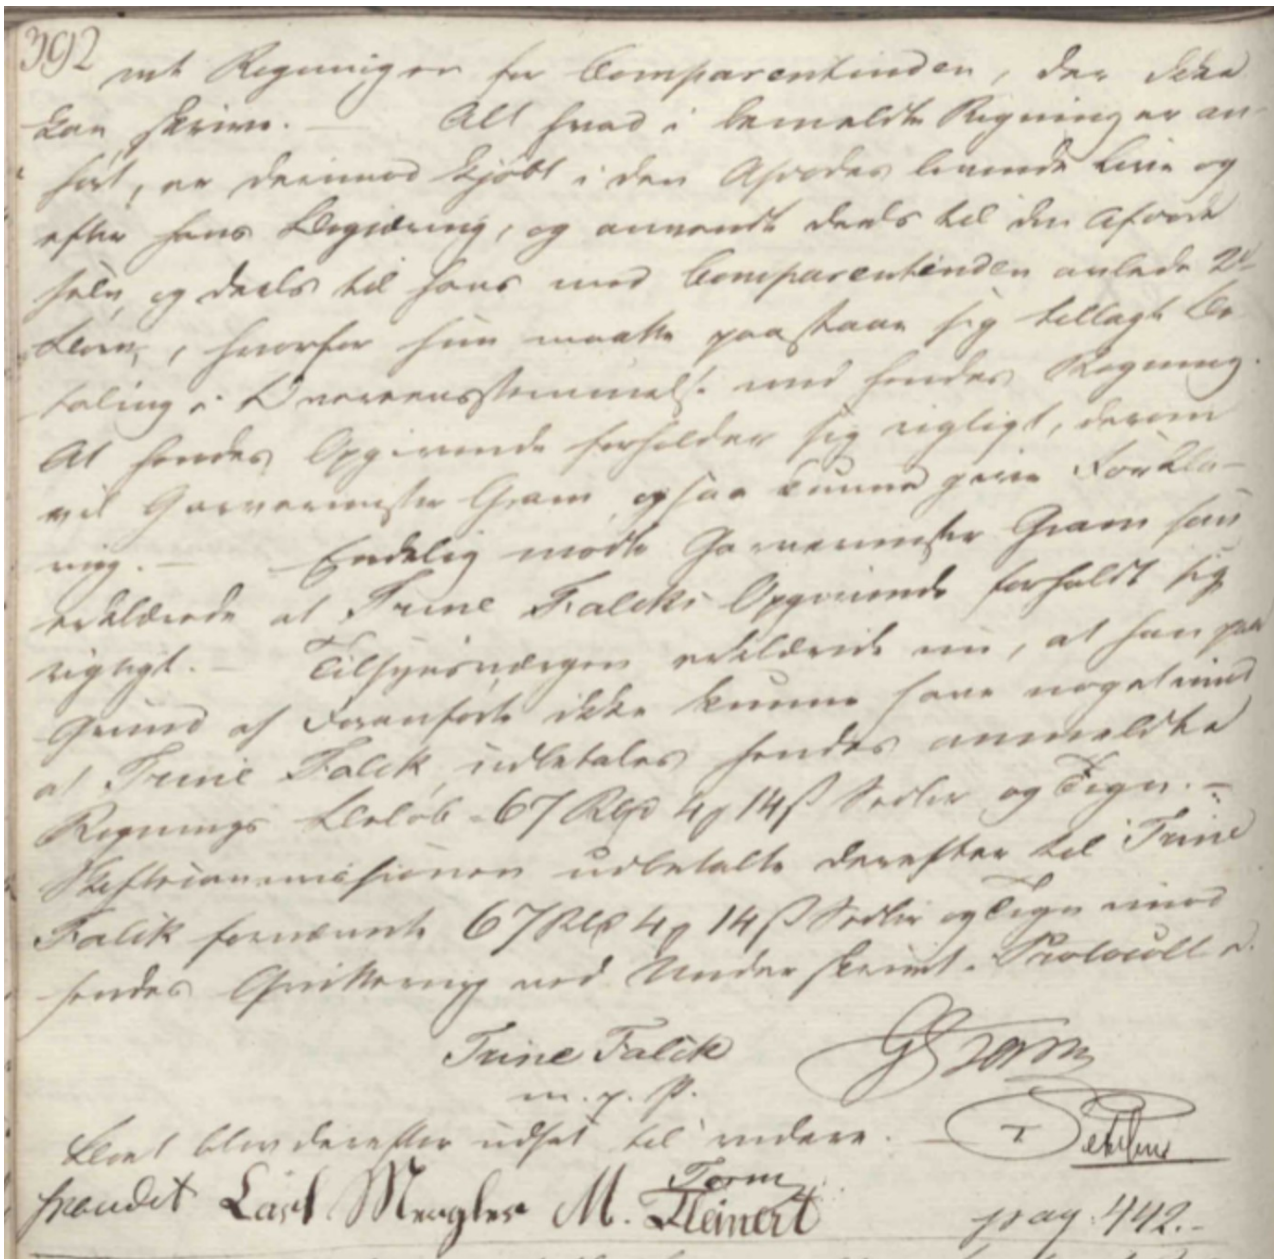 392
Regninger for Comparentinden, der ikke
kan skrive. — Alt hvad i bemeldte Regninger an-
ført, er derimod kjøbt i den Afdødes levende Live og
efter hans Begiæring, og anvendt deels til den Afdøde
selv og deels til hans med Comparentinden avlede 2de
Børn, hvorfor hun maatte paastaae sig tillagt Be-
taling i Overeensstemmelse med hendes Regning.
At hendes Opgivende forholder sig rigtigt, derom
vil Garvermester Gram ogsaa kunne give Forkla-
ring. — Endelig mødte Garvermester Gram som
erklærede at Trine Falcks Opgivende forholdt sig
rigtigt. — Tilsynsværgen erklærede nu, at han paa
Grund af Foranførte ikke kunne have noget imod
at Trine Falck udbetales hendes anmeldte
Regnings Beløb 67 Rbd 4 14 ß Sedler og Tegn. —
Skiftecommissionen udbetalte derefter til Trine
Falck fornævnte 67 Rbd 4 14 ß Sedler og Tegn mod
hendes Qvittering ved Underskrivt i Protocollen.
Trine Falck
m. p. P.
Boet blev derefter udsat til videre. —
Carl Mengler M. Kleinert
pag. 442. —